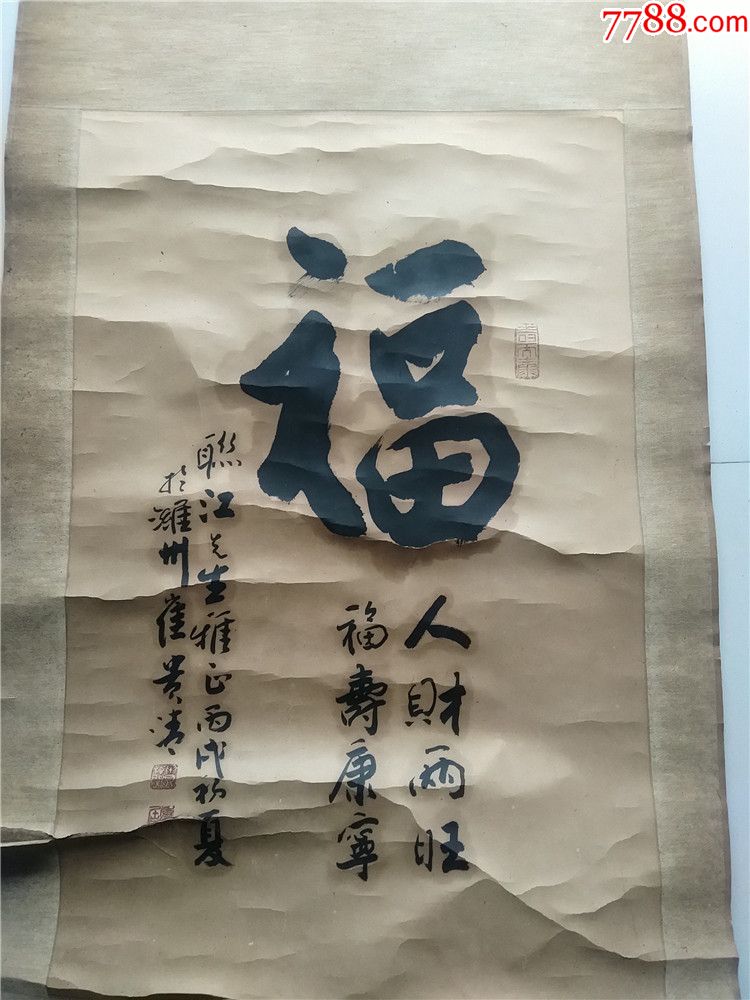 7788.com
福
人財兩旺
福壽康寧
聯江先生雅正丙戌初夏
於濰州崔貴清